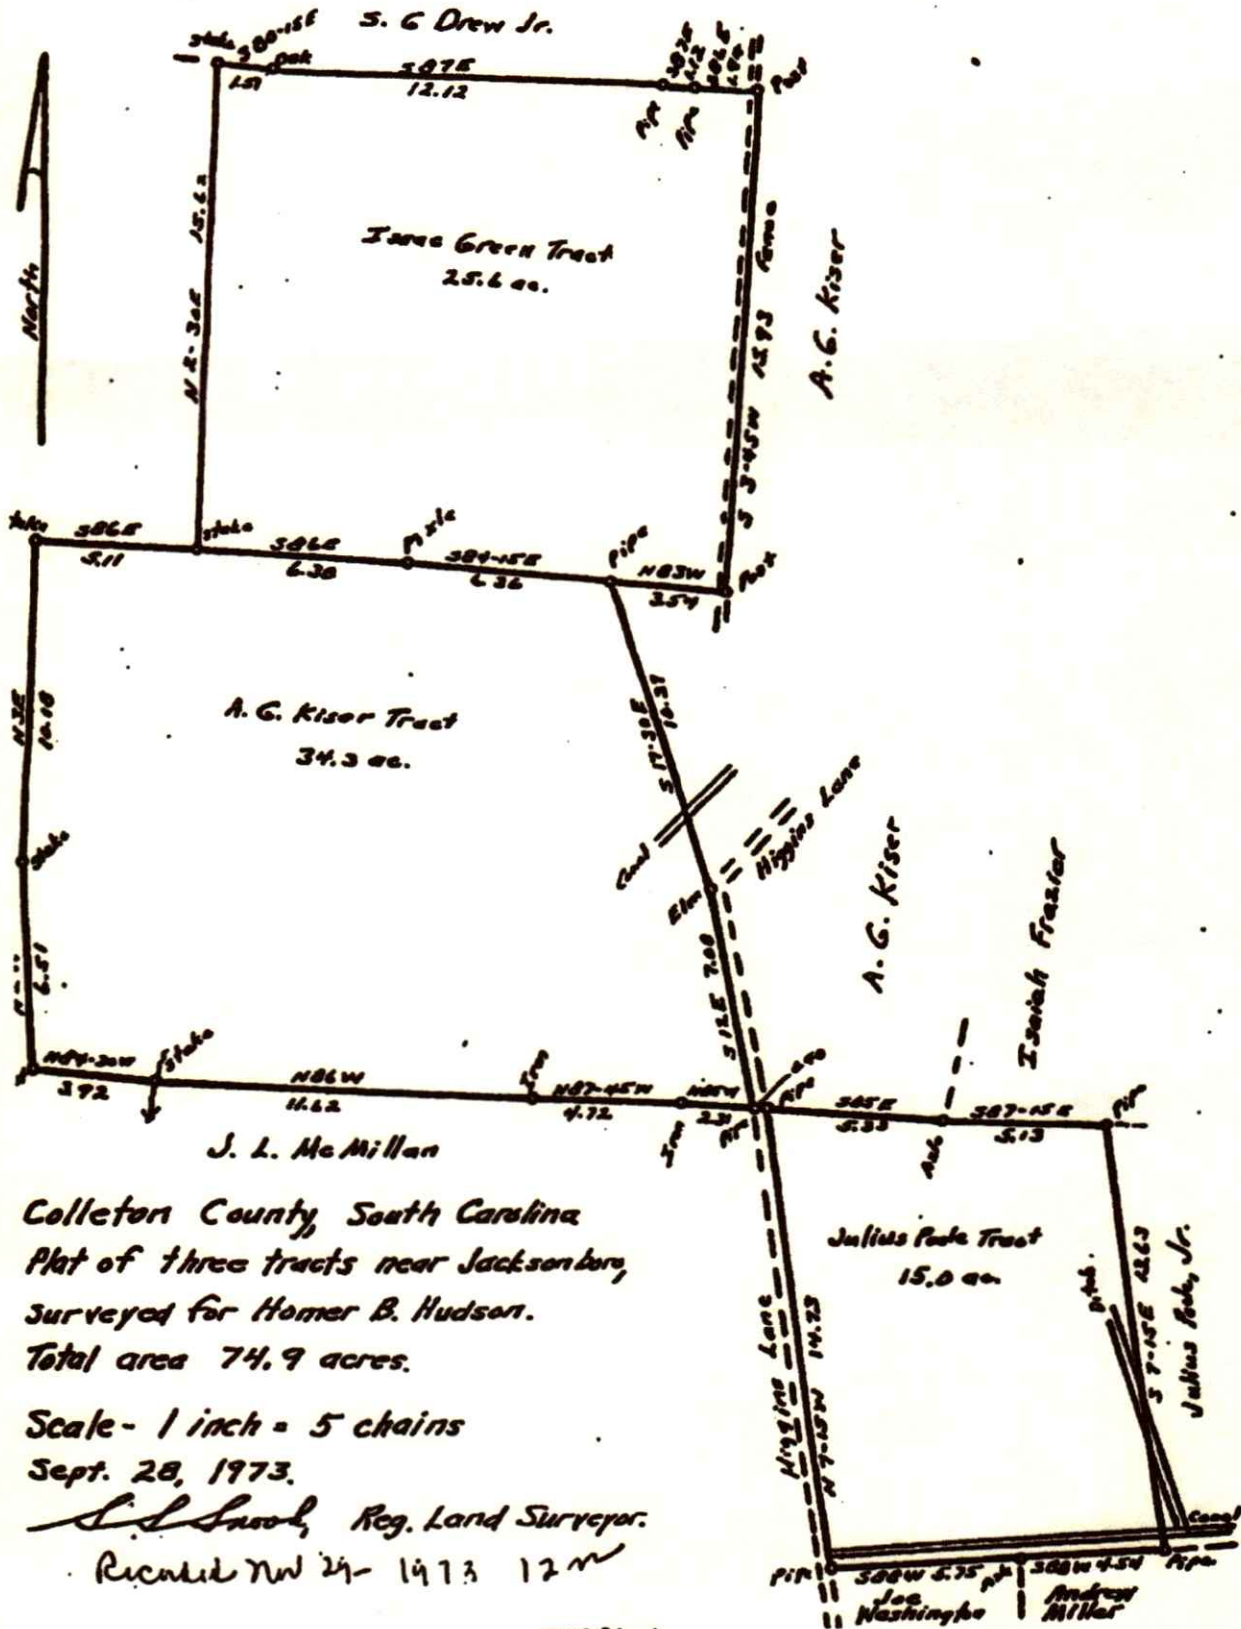 S. G Drew Jr.
Stake
S 80-15E
Oak
1.51
S87E
12.12
Pipe
Pipe
Post
North
N 2-30E 15.62
Isaac Green Tract
25.6 ac.
Fence
S 3-45W 15.93
A.G. Kiser
S86E
5.11
Stake
S86E
6.30
S84-15E
6.36
Pipe
N83W
3.54
Post
N3E
10.18
A.G. Kiser Tract
34.3 ac.
S 17-30E
10.37
Canal
Higgins Lane
Elm
S 12E 7.00
Stake
6.51
A.G. Kiser
Isaiah Frazier
N84-30W
3.92
Stake
N86W
11.62
Iron
N87-45W
4.72
Iron
2.31
Pipe
S85E
5.33
Ash
S87-15E
5.13
J. L. McMillan
Julius Poole Tract
15.0 ac.
Ditch
S 7-15E 13.63
Julius Poole, Jr.
Higgins Lane
N 7-15W 14.23
Canal
Pipe
S88W 5.75
S88W 4.54
Pipe
Joe
Washington
Andrew
Miller
Colleton County, South Carolina
Plat of three tracts near Jacksonboro,
surveyed for Homer B. Hudson.
Total area 74.9 acres.
Scale- 1 inch = 5 chains
Sept. 28, 1973.
Reg. Land Surveyor.
Recorded Nov 29- 1973 12